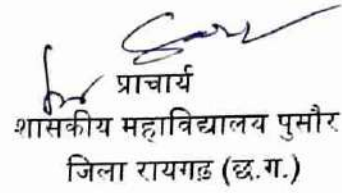 प्राचार्य
शासकीय महाविद्यालय पुसौर
जिला रायगढ़ (छ.ग.)